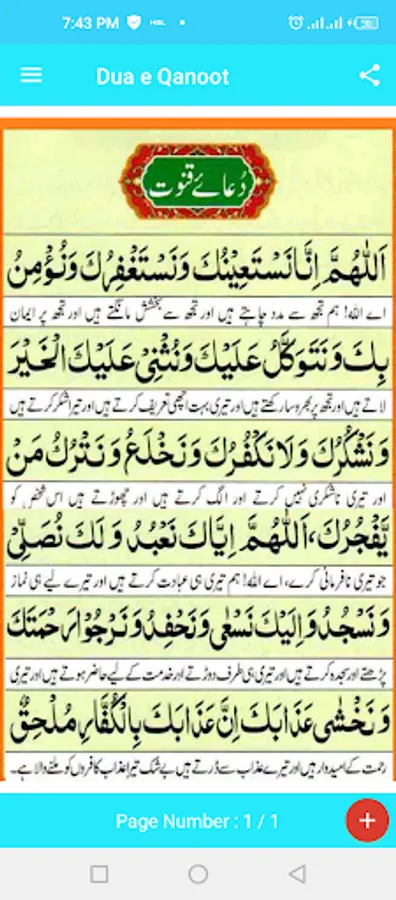 7:43 PM HBL
Dua e Qanoot
دُعائے قنوت
اَللّٰهُمَّ اِنَّا نَسْتَعِيْنُكَ وَنَسْتَغْفِرُكَ وَنُؤْمِنُ
اے اللہ! ہم تجھ سے مدد چاہتے ہیں اور تجھ سے بخشش مانگتے ہیں اور تجھ پر ایمان
بِكَ وَنَتَوَكَّلُ عَلَيْكَ وَنُثْنِيْ عَلَيْكَ الْخَيْرَ
لاتے ہیں اور تجھ پر بھروسا رکھتے ہیں اور تیری بہت اچھی تعریف کرتے ہیں اور تیرا شکر کرتے ہیں
وَنَشْكُرُكَ وَلَا نَكْفُرُكَ وَنَخْلَعُ وَنَتْرُكُ مَنْ
اور تیری ناشکری نہیں کرتے اور الگ کرتے ہیں اور چھوڑتے ہیں اس شخص کو
يَّفْجُرُكَ، اَللّٰهُمَّ اِيَّاكَ نَعْبُدُ وَلَكَ نُصَلِّيْ
جو تیری نافرمانی کرے، اے اللہ! ہم تیری ہی عبادت کرتے ہیں اور تیرے لیے ہی نماز
وَنَسْجُدُ وَاِلَيْكَ نَسْعٰى وَنَحْفِدُ وَنَرْجُوْا رَحْمَتَكَ
پڑھتے اور سجدہ کرتے ہیں اور تیری ہی طرف دوڑتے اور خدمت کے لیے حاضر ہوتے ہیں اور تیری
وَنَخْشٰى عَذَابَكَ اِنَّ عَذَابَكَ بِالْكُفَّارِ مُلْحِقٌ
رحمت کے امیدوار ہیں اور تیرے عذاب سے ڈرتے ہیں بے شک تیرا عذاب کافروں کو ملنے والا ہے۔
Page Number : 1 / 1